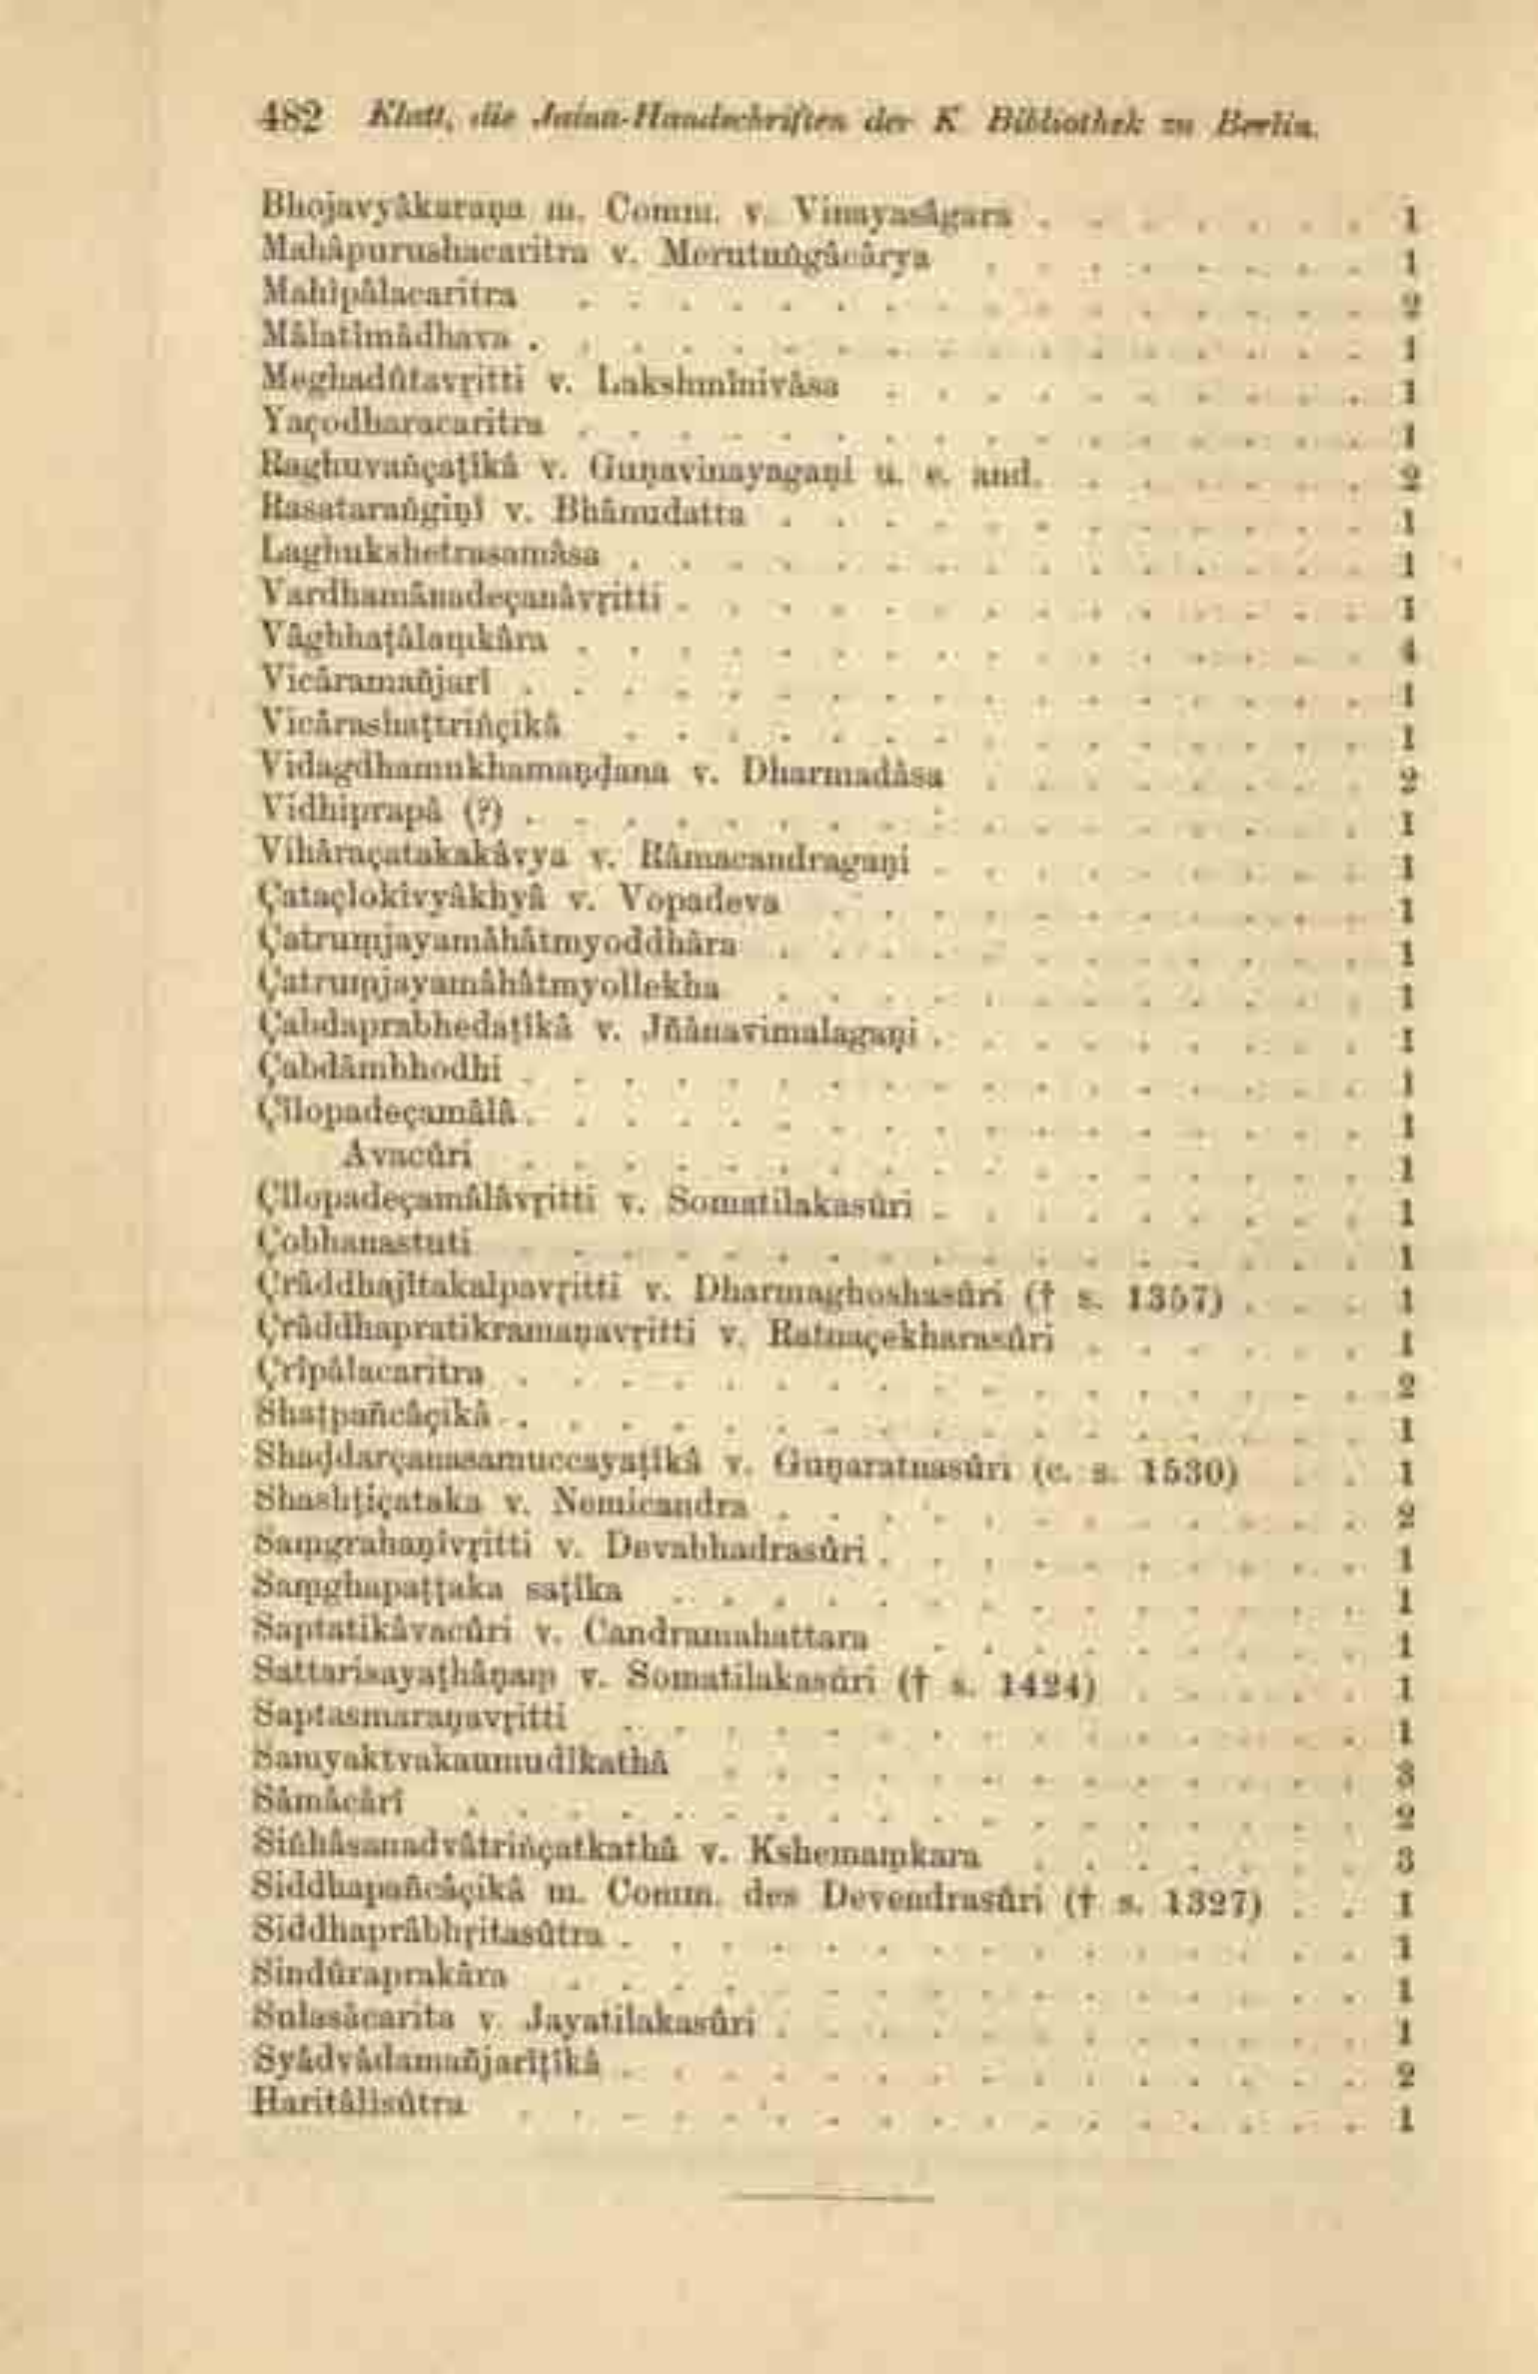 482 Klatt, die Jaina-Handschriften der K. Bibliothek zu Berlin.
Bhojavyâkaraṇa m. Comm. v. Vinayasâgara . . . . . . . 1
Mahâpurushacaritra v. Merutuṅgâcârya . . . . . . . . 1
Mahîpâlacaritra . . . . . . . . . . . . . . . . 2
Mâlatîmâdhava . . . . . . . . . . . . . . . . . 1
Meghadûtavṛitti v. Lakshmînivâsa . . . . . . . . . . 1
Yaçodharacaritra . . . . . . . . . . . . . . . . 1
Raghuvaṅçaṭîkâ v. Guṇavinayagaṇi u. e. and. . . . . . . 2
Rasataraṅgiṇî v. Bhânudatta . . . . . . . . . . . . 1
Laghukshetrasamâsa . . . . . . . . . . . . . . . 1
Vardhamânadeçanâvṛitti . . . . . . . . . . . . . . 1
Vâghhaṭâlaṃkâra . . . . . . . . . . . . . . . . 4
Vicâramañjarî . . . . . . . . . . . . . . . . . 1
Vicârashaṭtriṅçikâ . . . . . . . . . . . . . . . 1
Vidagdhamukhamaṇḍana v. Dharmadâsa . . . . . . . . 2
Vidhiprapâ (?) . . . . . . . . . . . . . . . . . 1
Vihâraçatakakâvya v. Râmacandragaṇi . . . . . . . . . 1
Çataçlokîvyâkhyâ v. Vopadeva . . . . . . . . . . . 1
Çatruṃjayamâhâtmyoddhâra . . . . . . . . . . . . 1
Çatruṃjayamâhâtmyollekha . . . . . . . . . . . . 1
Çabdaprabhedaṭîkâ v. Jñânavimalagaṇi . . . . . . . . . 1
Çabdâmbhodhi . . . . . . . . . . . . . . . . . 1
Çîlopadeçamâlâ . . . . . . . . . . . . . . . . . 1
Avacûri . . . . . . . . . . . . . . . . . 1
Çîlopadeçamâlâvṛitti v. Somatilakasûri . . . . . . . . . 1
Çobhanastuti . . . . . . . . . . . . . . . . . 1
Çrâddhajîtakalpavṛitti v. Dharmaghoshasûri († s. 1357) . . . 1
Çrâddhapratikramaṇavṛitti v. Ratnaçekharasûri . . . . . . 1
Çrîpâlacaritra . . . . . . . . . . . . . . . . . 2
Shaṭpañcâçikâ . . . . . . . . . . . . . . . . . 1
Shaḍdarçanasamuccayaṭîkâ v. Guṇaratnasûri (c. s. 1530) . . 1
Shashṭiçataka v. Nemicandra . . . . . . . . . . . . 2
Saṃgrahaṇîvṛitti v. Devabhadrasûri . . . . . . . . . . 1
Saṃghapaṭṭaka saṭîka . . . . . . . . . . . . . . 1
Saptatikâvacûri v. Candramahattara . . . . . . . . . 1
Sattarisayaṭhâṇaṃ v. Somatilakasûri († s. 1424) . . . . . 1
Saptasmaraṇavṛitti . . . . . . . . . . . . . . . 1
Samyaktvakaumudîkathâ . . . . . . . . . . . . . 3
Sâmâcârî . . . . . . . . . . . . . . . . . . 2
Siṅhâsanadvâtriṅçatkathâ v. Kshemaṃkara . . . . . . . 3
Siddhapañcâçikâ m. Comm. des Devendrasûri († s. 1327) . . 1
Siddhaprâbhṛitasûtra . . . . . . . . . . . . . . . 1
Sindûraprakâra . . . . . . . . . . . . . . . . 1
Sulasâcarita v. Jayatilakasûri . . . . . . . . . . . . 1
Syâdvâdamañjarîṭîkâ . . . . . . . . . . . . . . . 2
Haritâlîsûtra . . . . . . . . . . . . . . . . . 1